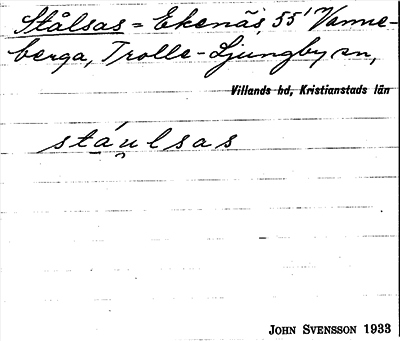 Stålsas = Ekenäs, 55¹⁷ Vanne-
berga, Trolle-Ljungby sn,
Villands hd, Kristianstads län
stáu̯lsas
JOHN SVENSSON 1933